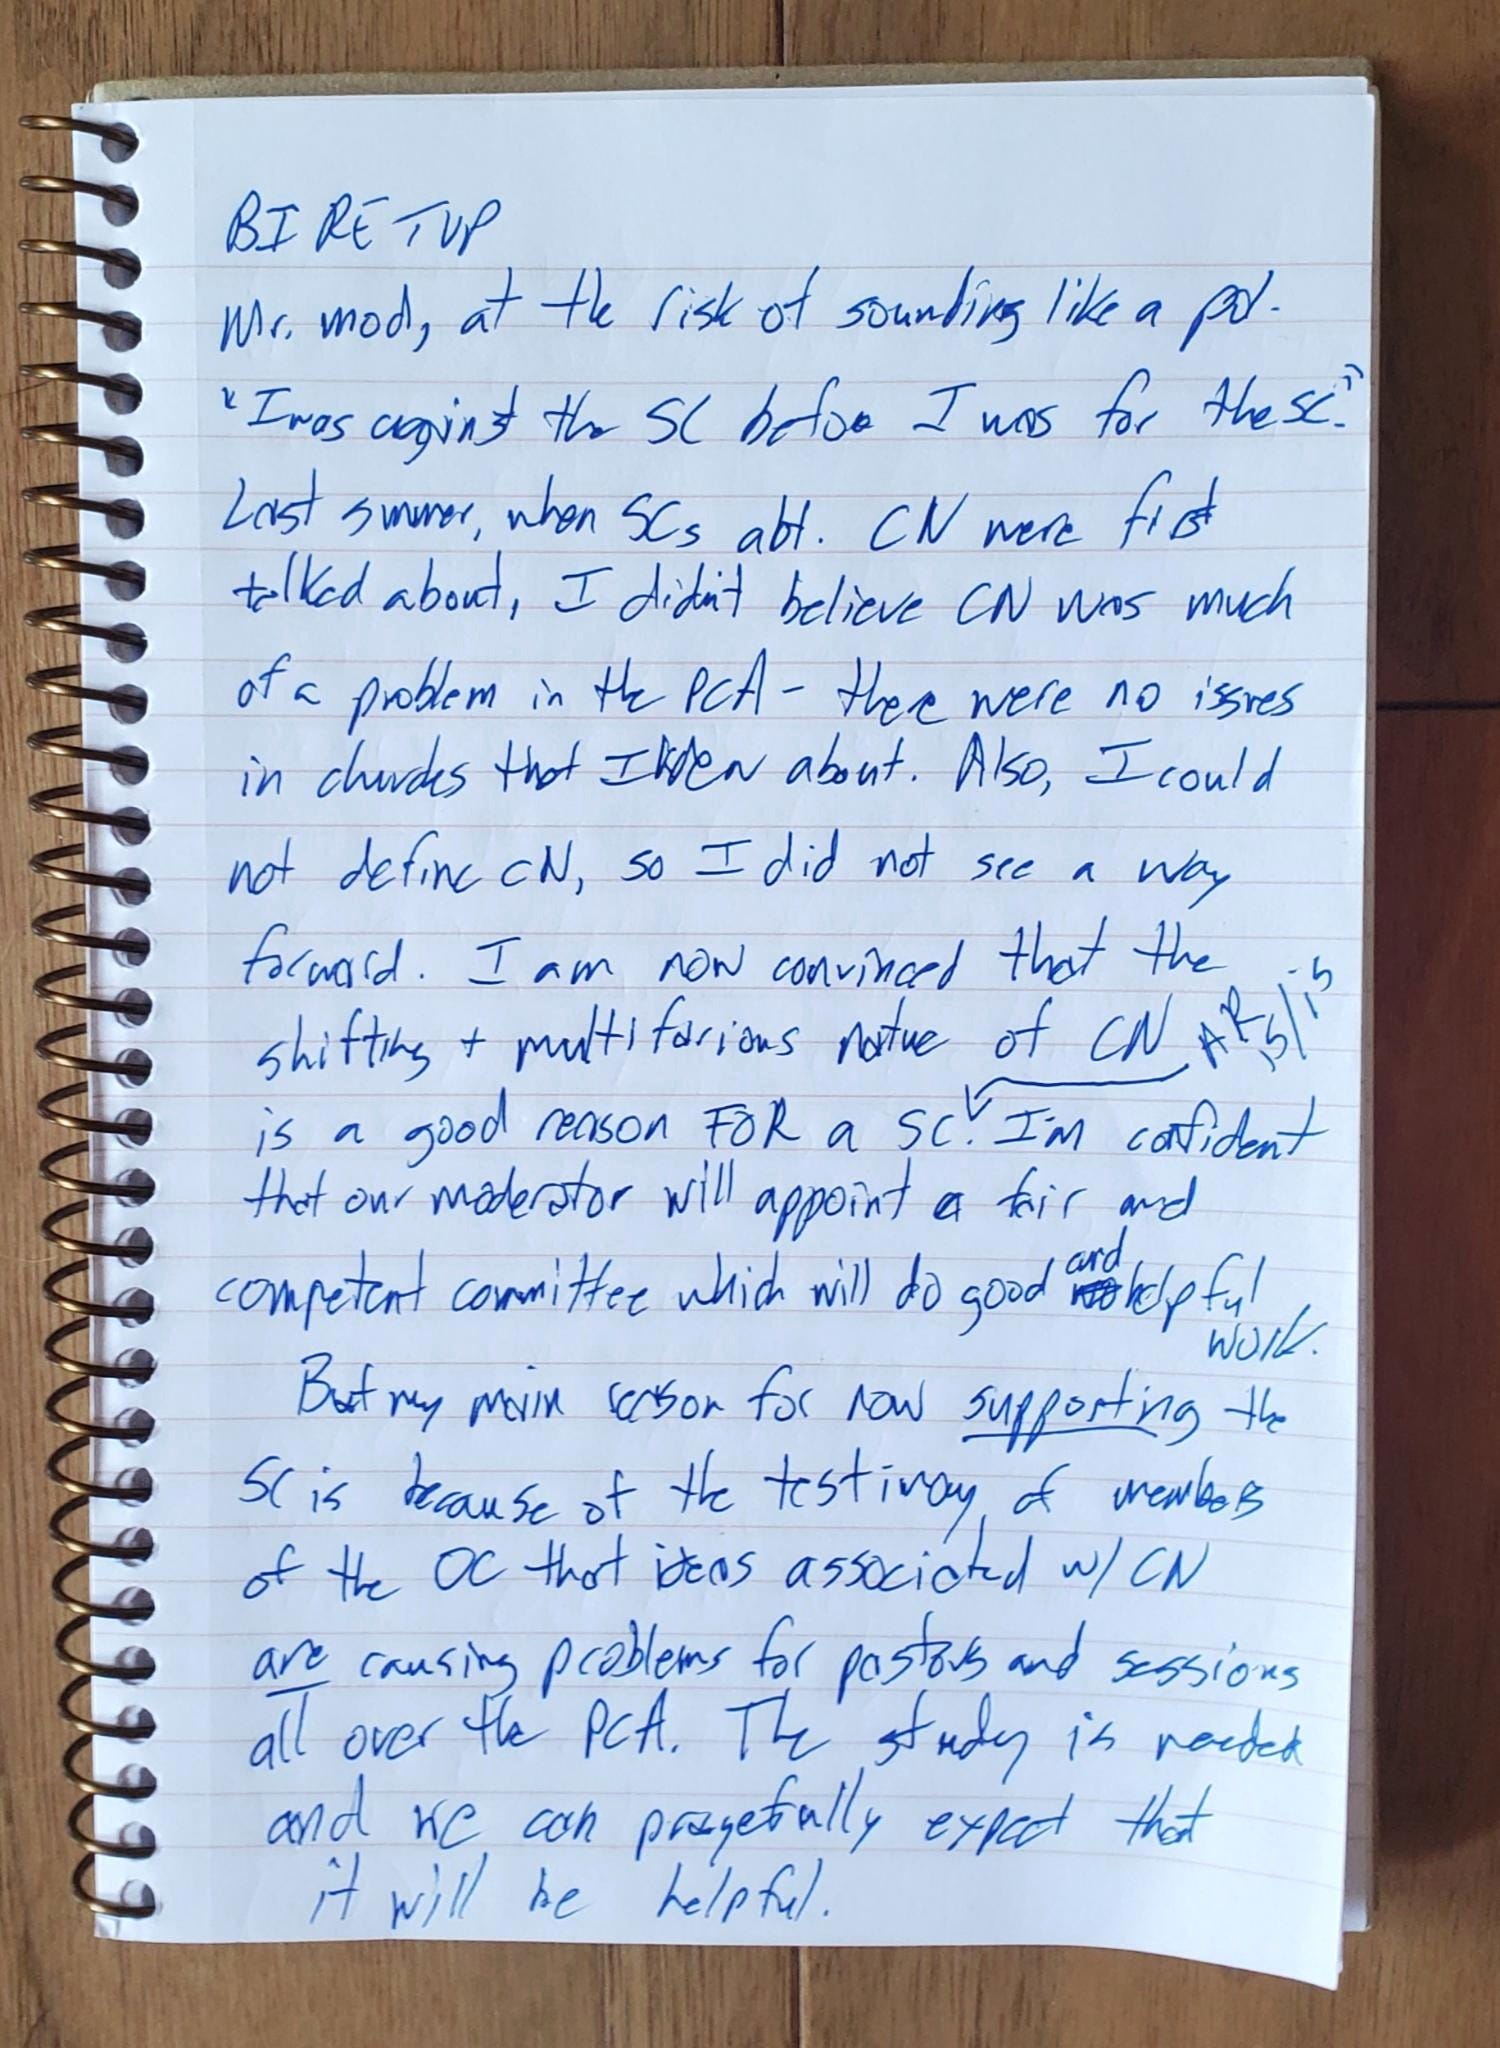 BI RE TUP
Mr. mod, at the risk of sounding like a pol.
"I was against the SC before I was for the SC."
Last summer, when SCs abt. CN were first
talked about, I didn't believe CN was much
of a problem in the PCA - there were no issues
in churches that I knew about. Also, I could
not define CN, so I did not see a way
forward. I am now convinced that the
shifting + multifarious nature of CN AR 15/15
is a good reason FOR a SC. I'm confident
that our moderator will appoint a fair and
competent committee which will do good and helpful
work.
But my main reason for now supporting the
SC is because of the testimony of members
of the OC that ideas associated w/ CN
are causing problems for pastors and sessions
all over the PCA. The study is needed
and we can prayerfully expect that
it will be helpful.